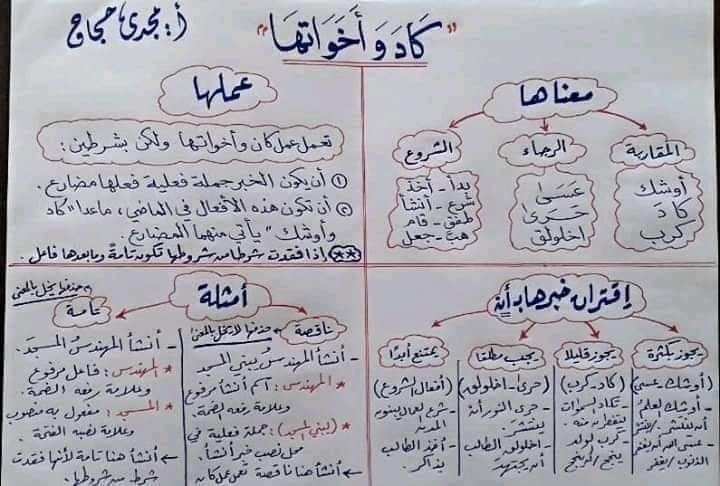 "كَادَ وَ أَخَوَاتهَا"
أ: مجدى حجاج
معناها
المقاربة
أوشك
كادَ
كرب
الرجاء
عَسَى
حَرَى
اخلولق
الشروع
بدأ - أخذ
شرع - أنشأ
طفق - قام
هبَّ - جعل
عملها
تعمل عمل كان وأخواتها ولكن بشرطين:
① أن يكون الخبر جملة فعلية فعلها مضارع.
② أن تكون هذه الأفعال في الماضي، ماعدا "كاد
وأوشك" يأتي منهما المضارع.
** إذا فقدت شرطا من شروطها تكون تامة وما بعدها فاعل.
إقتران خبرها بـ أن
يجوز بكثرة
(أوشك - عسى)
- أوشك العلم
أن ينتشر / ينتشر
- عسى الله أن يغفر
الذنوب / يغفر
يجوز قليلا
(كاد - كرب)
- تكاد السموات
يتفطرن منه.
- كرب الولد
ينجح / أن ينجح
يجب مطلقا
(حرى - اخلولق)
- حرى النور أن
ينتشر.
- اخلولق الطالب
أن يجتهد
يمتنع أبدًا
(أفعال الشروع)
- شرع العمال يبنون
المدن
- أخذ الطالب
يذاكر.
أمثلة
ناقصة
حذفها لا يخل بالمعنى
- أنشأ المهندسُ يبني المسجد
* المهندس: اسم أنشأ مرفوع
وعلامة رفعه الضمة.
* (يبني المسجد): جملة فعلية في
محل نصب خبر أنشأ.
← أنشأ هنا ناقصة تعمل عمل كان
حذفها يخل بالمعنى
تامة
- أنشأ المهندسُ المسجدَ.
* المهندس: فاعل مرفوع
وعلامة رفعه الضمة.
* المسجد: مفعول به منصوب
وعلامة نصبه الفتحة
← أنشأ هنا تامة لأنها فقدت
شرط من شروطها.